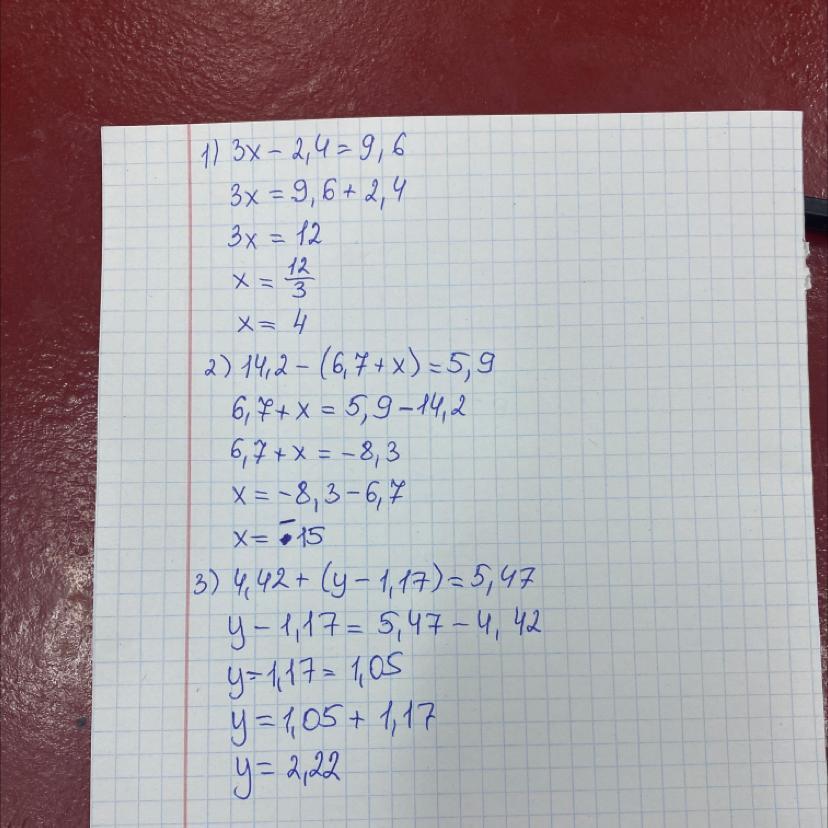 1) 3x - 2,4 = 9,6
3x = 9,6 + 2,4
3x = 12
x = 12/3
x = 4
2) 14,2 - (6,7 + x) = 5,9
6,7 + x = 5,9 - 14,2
6,7 + x = -8,3
x = -8,3 - 6,7
x = -15
3) 4,42 + (y - 1,17) = 5,47
y - 1,17 = 5,47 - 4,42
y = 1,17 = 1,05
y = 1,05 + 1,17
y = 2,22